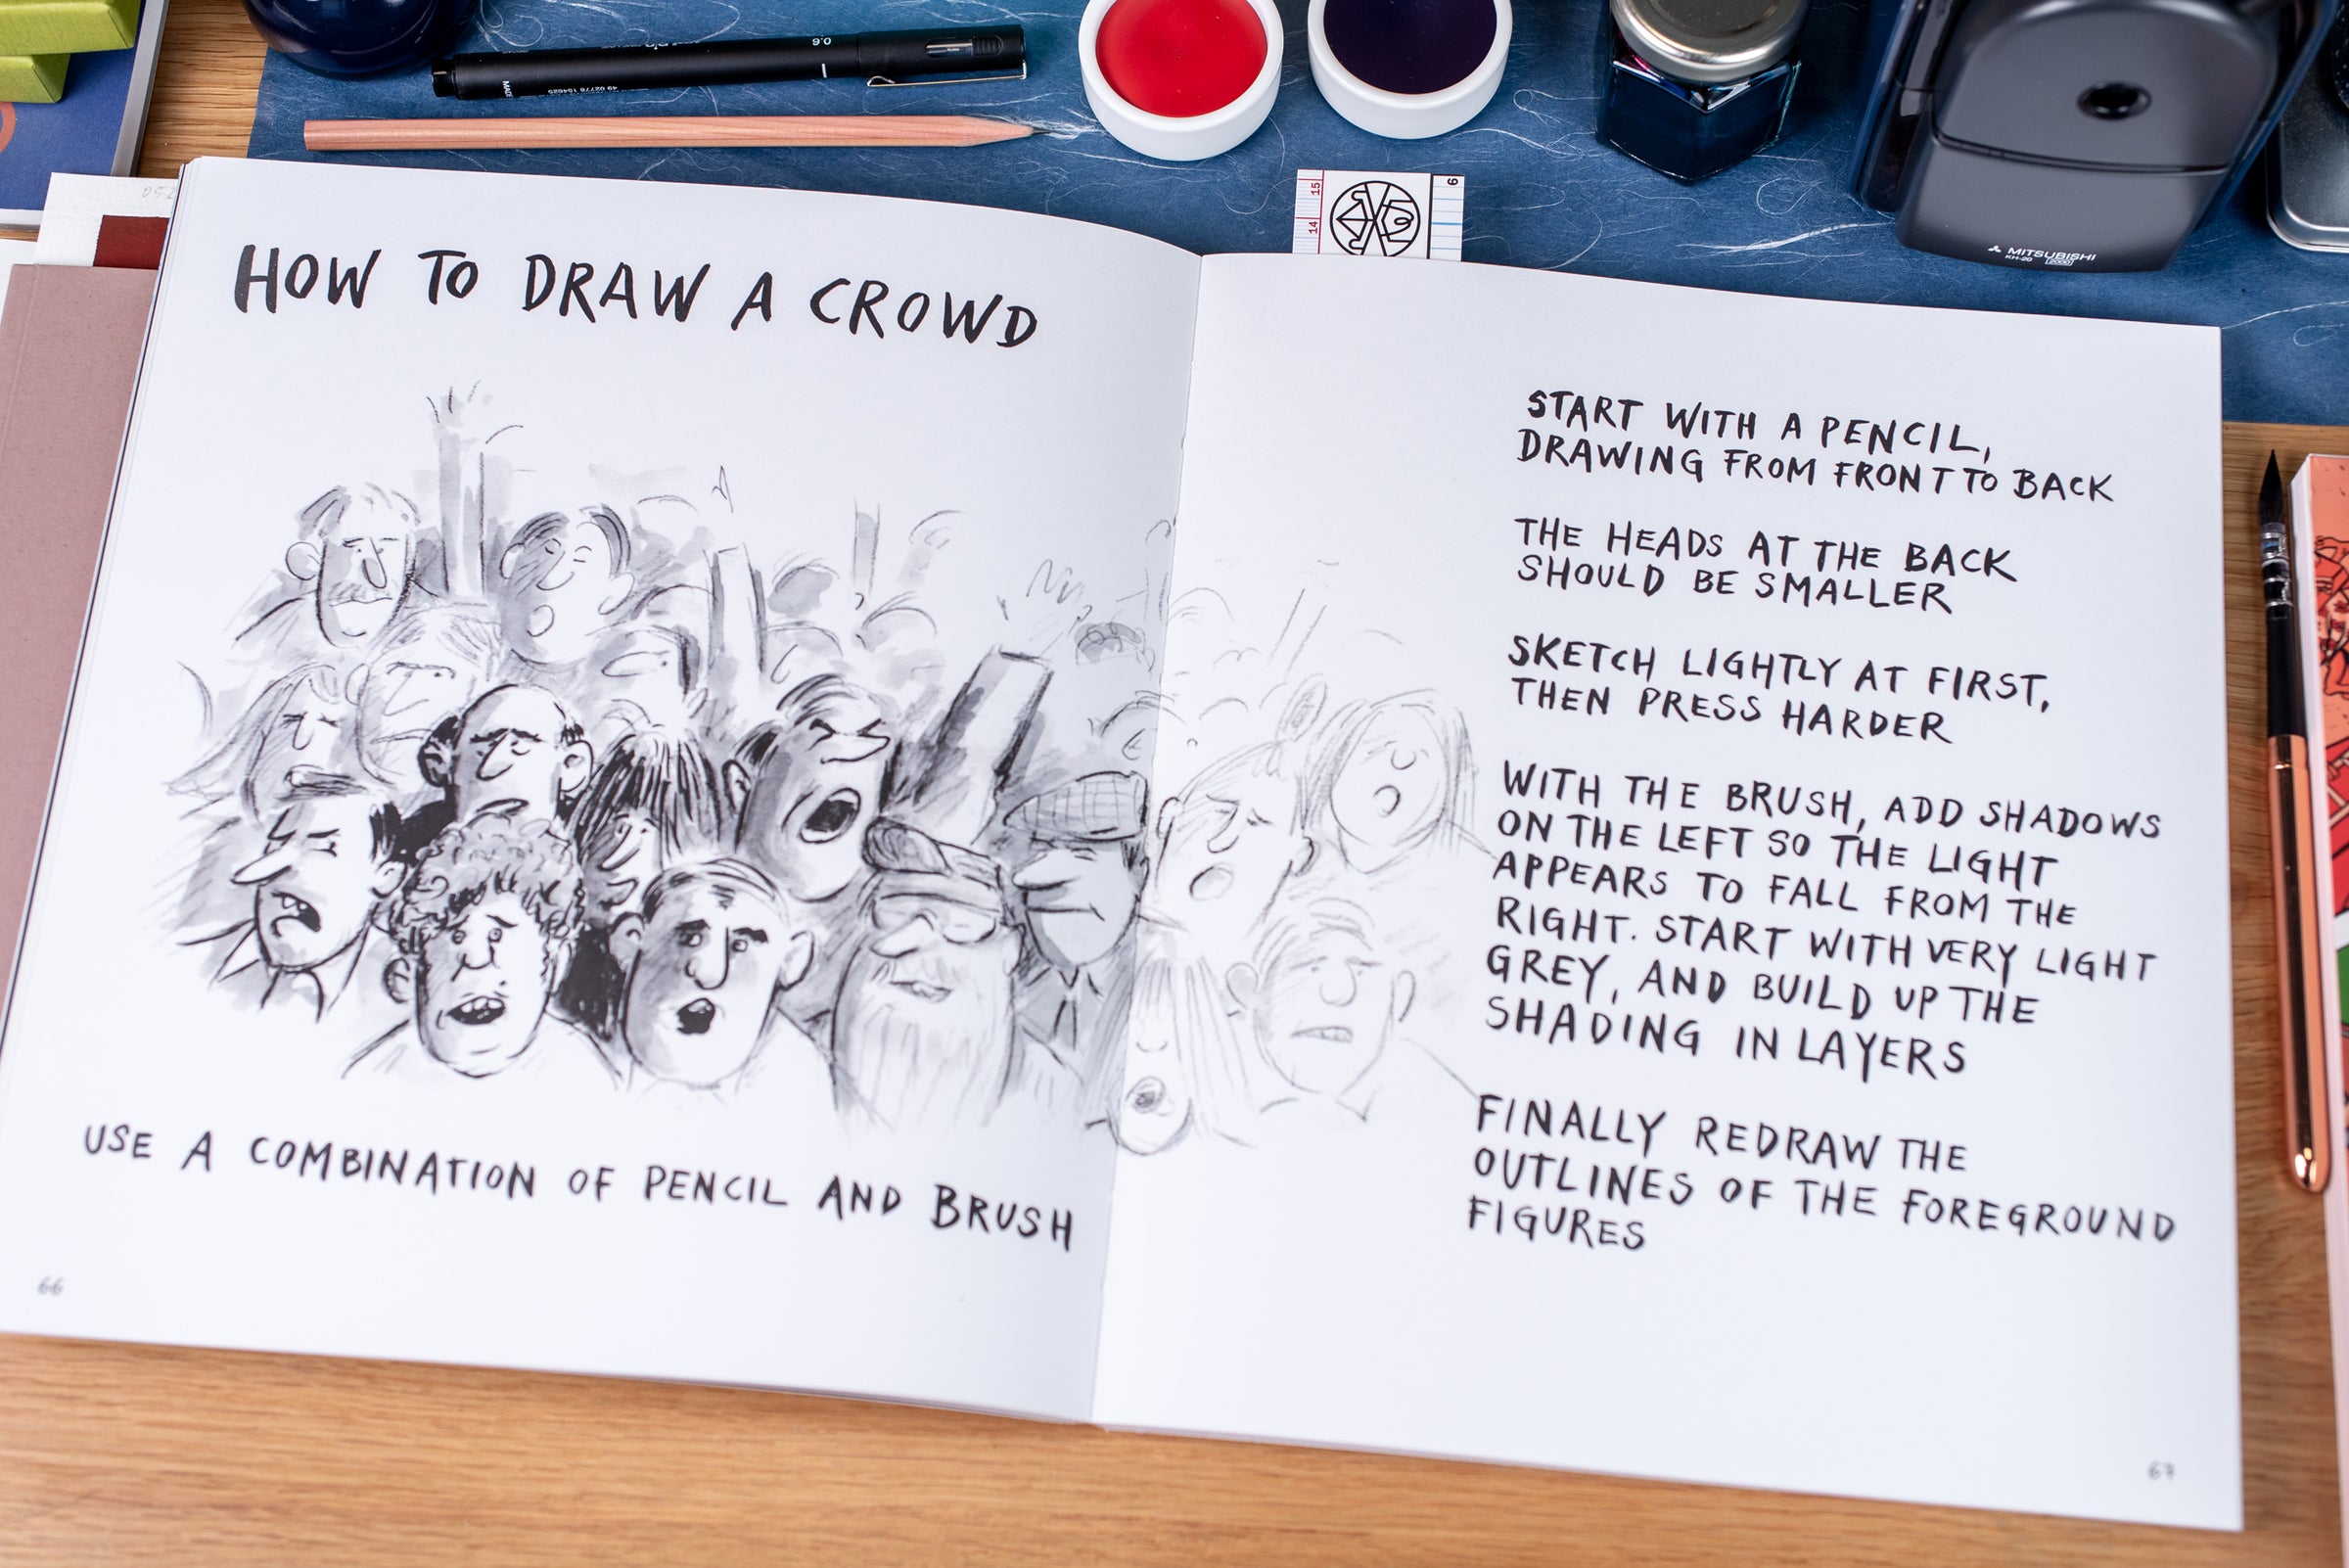 0.6
49 02778 154625
15
14
6
MITSUBISHI
KH-20
HOW TO DRAW A CROWD
USE A COMBINATION OF PENCIL AND BRUSH
66
START WITH A PENCIL,
DRAWING FROM FRONT TO BACK
THE HEADS AT THE BACK
SHOULD BE SMALLER
SKETCH LIGHTLY AT FIRST,
THEN PRESS HARDER
WITH THE BRUSH, ADD SHADOWS
ON THE LEFT SO THE LIGHT
APPEARS TO FALL FROM THE
RIGHT. START WITH VERY LIGHT
GREY, AND BUILD UP THE
SHADING IN LAYERS
FINALLY REDRAW THE
OUTLINES OF THE FOREGROUND
FIGURES
67